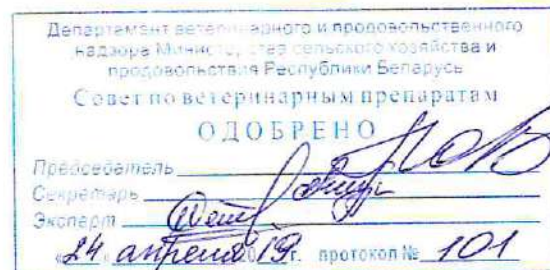 Департамент ветеринарного и продовольственного
надзора Министерства сельского хозяйства и
продовольствия Республики Беларусь
Совет по ветеринарным препаратам
ОДОБРЕНО
Председатель
Секретарь
Эксперт
«24» апреля 2019г. протокол № 101